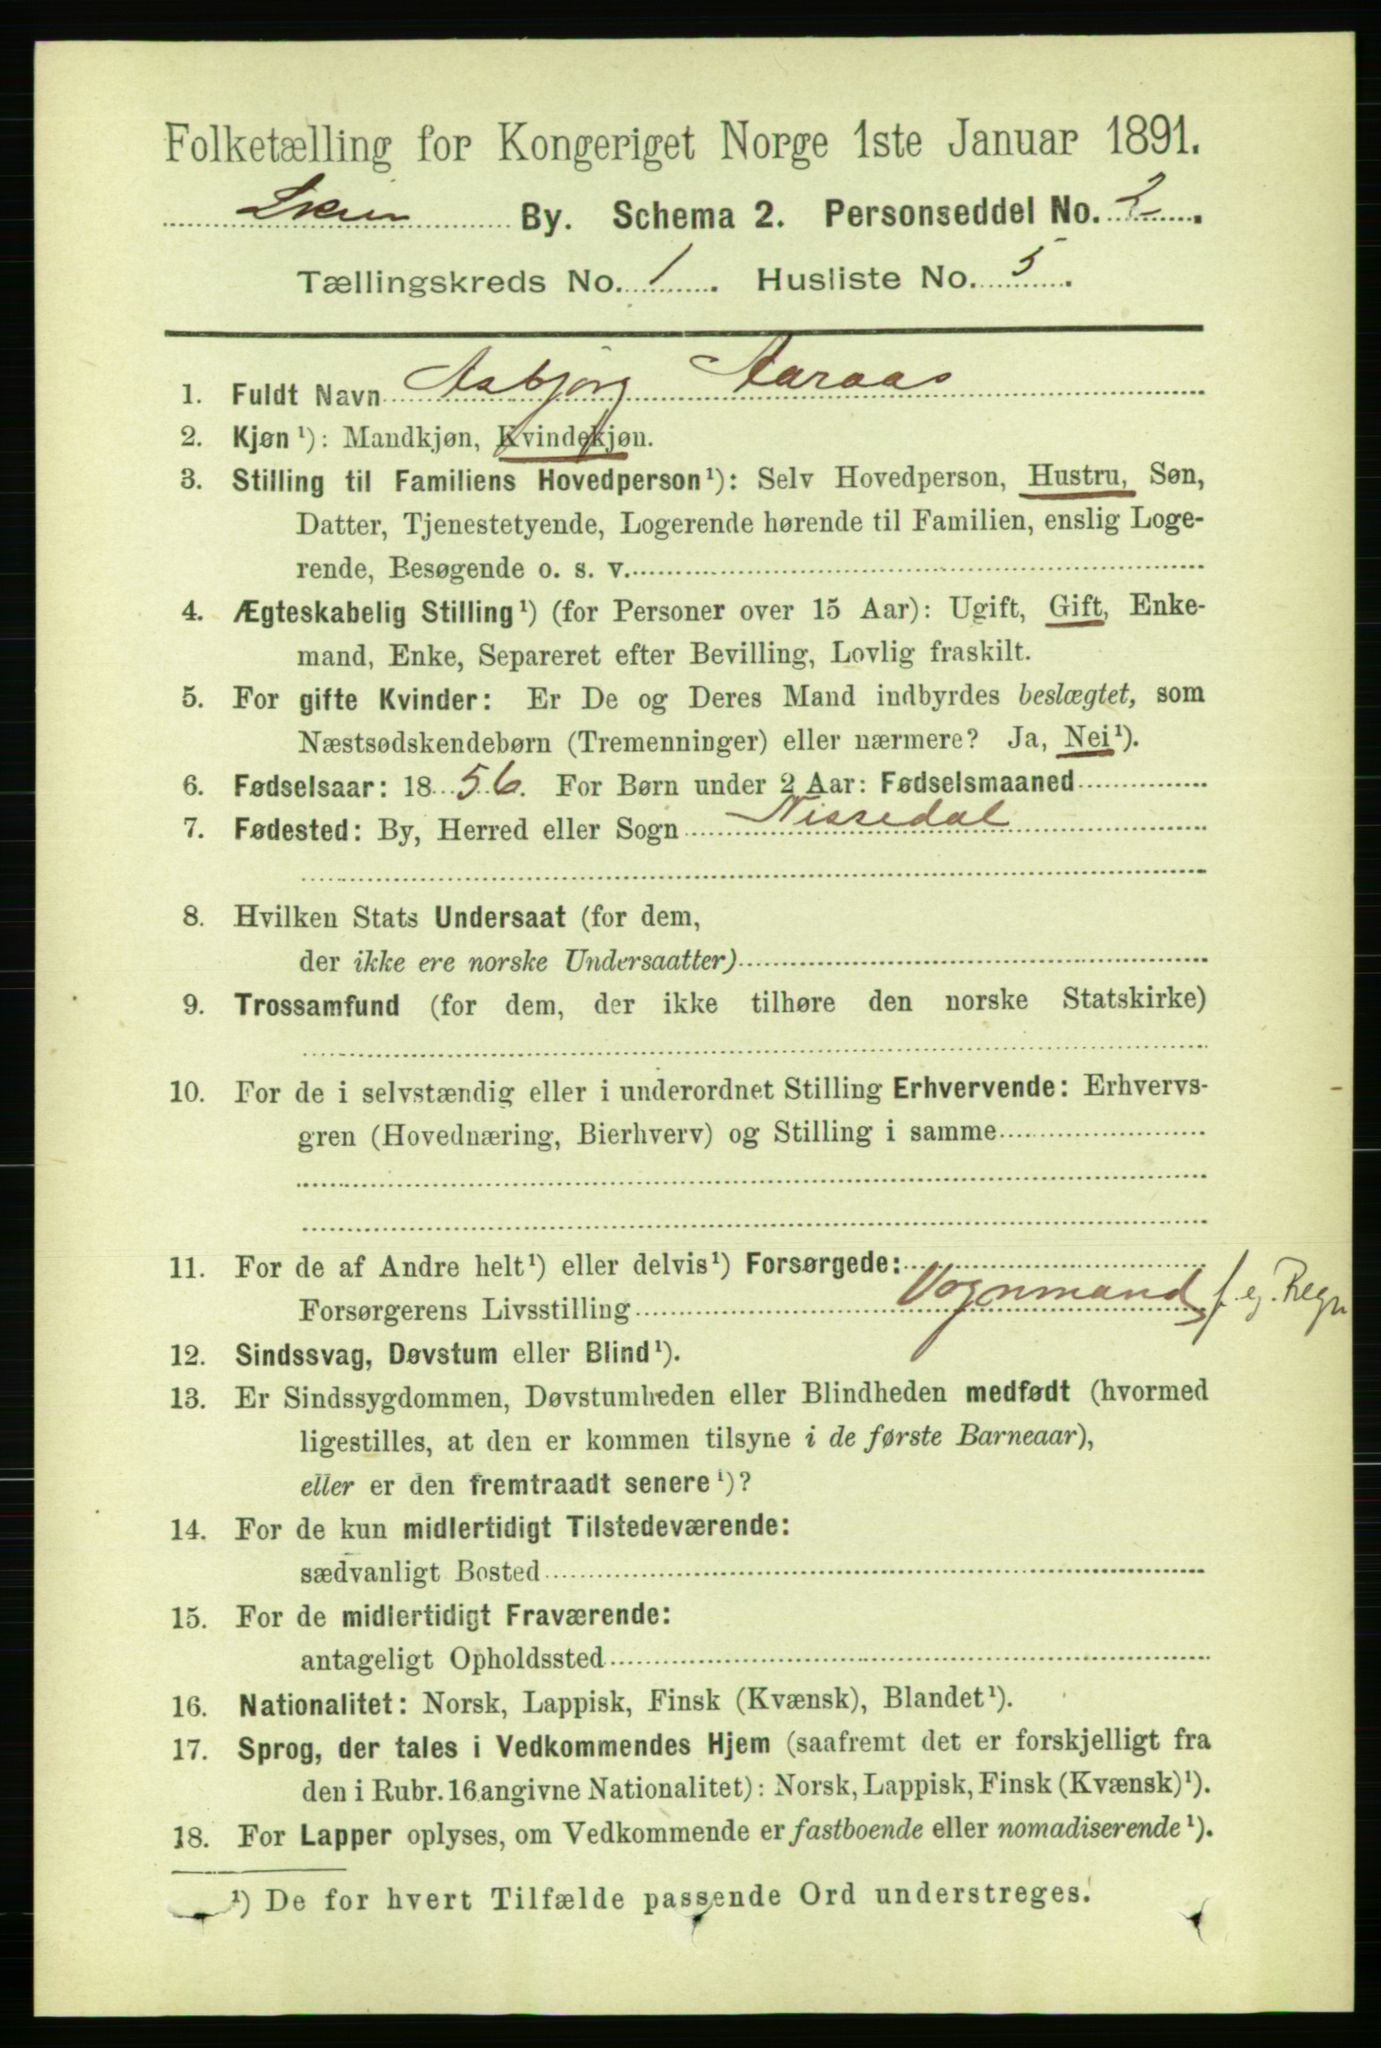 Folketælling for Kongeriget Norge 1ste Januar 1891.
Skien By. Schema 2. Personseddel No. 2.
Tællingskreds No. 1. Husliste No. 5.
1. Fuldt Navn Asbjørg Aaraas
2. Kjøn¹): Mandkjøn, Kvindekjøn.
3. Stilling til Familiens Hovedperson¹): Selv Hovedperson, Hustru, Søn,
Datter, Tjenestetyende, Logerende hørende til Familien, enslig Loge-
rende, Besøgende o. s. v.
4. Ægteskabelig Stilling¹) (for Personer over 15 Aar): Ugift, Gift, Enke-
mand, Enke, Separeret efter Bevilling, Lovlig fraskilt.
5. For gifte Kvinder: Er De og Deres Mand indbyrdes beslægtet, som
Næstsødskendebørn (Tremenninger) eller nærmere? Ja, Nei¹).
6. Fødselsaar: 1856. For Børn under 2 Aar: Fødselsmaaned
7. Fødested: By, Herred eller Sogn Nissedal
8. Hvilken Stats Undersaat (for dem,
der ikke ere norske Undersaatter)
9. Trossamfund (for dem, der ikke tilhøre den norske Statskirke)
10. For de i selvstændig eller i underordnet Stilling Erhvervende: Erhvervs-
gren (Hovednæring, Bierhverv) og Stilling i samme
11. For de af Andre helt¹) eller delvis¹) Forsørgede:
Forsørgerens Livsstilling Vognmand f. eg. Regn
12. Sindssvag, Døvstum eller Blind¹).
13. Er Sindssygdommen, Døvstumheden eller Blindheden medfødt (hvormed
ligestilles, at den er kommen tilsyne i de første Barneaar),
eller er den fremtraadt senere¹)?
14. For de kun midlertidigt Tilstedeværende:
sædvanligt Bosted
15. For de midlertidigt Fraværende:
antageligt Opholdssted
16. Nationalitet: Norsk, Lappisk, Finsk (Kvænsk), Blandet¹).
17. Sprog, der tales i Vedkommendes Hjem (saafremt det er forskjelligt fra
den i Rubr. 16 angivne Nationalitet): Norsk, Lappisk, Finsk (Kvænsk)¹).
18. For Lapper oplyses, om Vedkommende er fastboende eller nomadiserende¹).
¹) De for hvert Tilfælde passende Ord understreges.